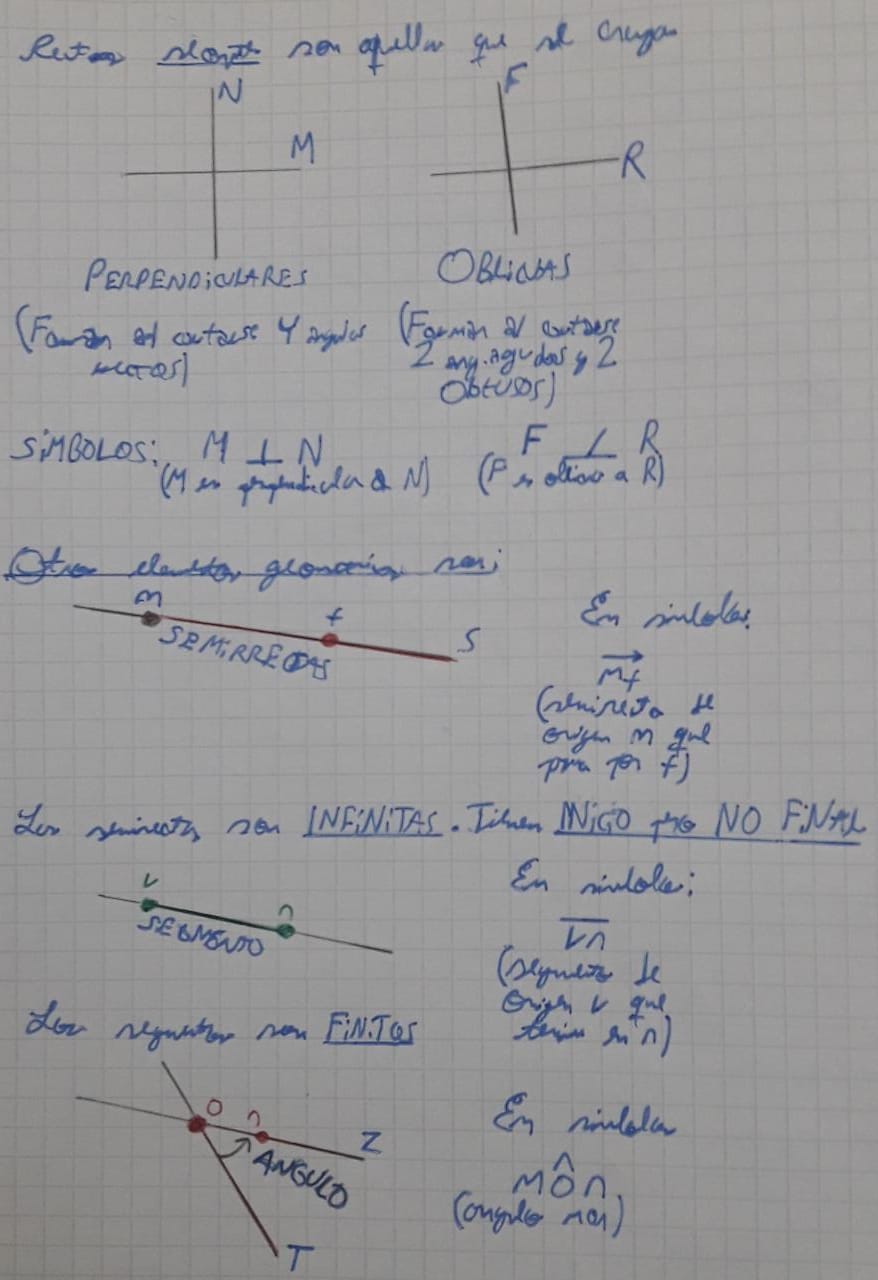 Rectas secantes son aquellas que se cruzan
N
M
F
R
PERPENDICULARES
OBLICUAS
(Forman al cortarse 4 ángulos
rectos)
(Forman al cortarse
2 ang. agudos y 2
Obtusos)
SÍMBOLOS: M ⊥ N
(M es perpendicular a N)
F ∠ R
(F es oblicuo a R)
Otros elementos geométricos son:
m
f
S
SEMIRRECTAS
En símbolos:
mf
(semirecta de
origen m que
pasa por f)
Las semirectas son INFINITAS. Tienen INICIO pero NO FINAL
v
n
SEGMENTO
En símbolos:
vn
(segmento de
origen v que
termina en n)
Los segmentos son FINITOS
O
n
Z
ANGULO
T
En símbolos
mÔn
(angulo mon)